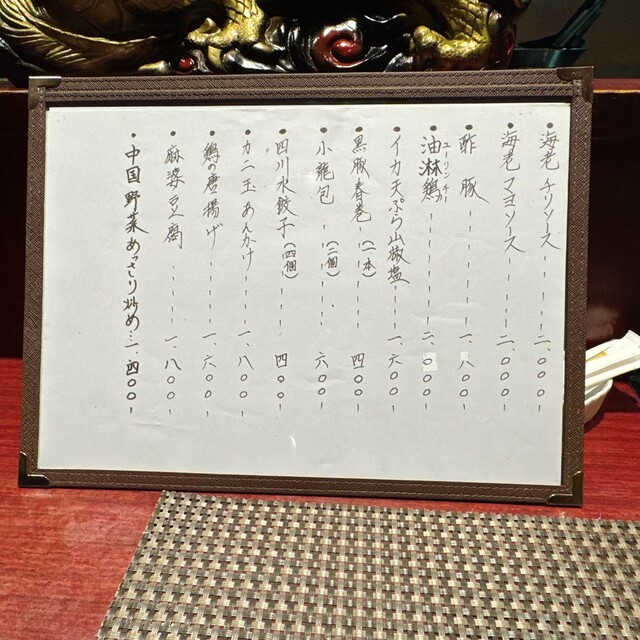 • 海老チリソース----二、〇〇〇-
• 海老マヨソース----二、〇〇〇-
• 酢豚--------一、八〇〇-
• 油淋鶏 ユーリンチー------二、〇〇〇-
• イカ天ぷら山椒塩---一、六〇〇-
• 黒豚春巻-(一本)---四〇〇-
• 小籠包--(一個)---六〇〇-
• 四川水餃子(四個)---四〇〇-
• カニ玉あんかけ----一、八〇〇-
• 鶏の唐揚げ------一、六〇〇-
• 麻婆豆腐-------一、八〇〇-
• 中国野菜あっさり炒め…一、四〇〇-